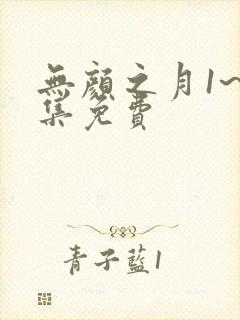 無顔之月1~
集免費
青子藍1